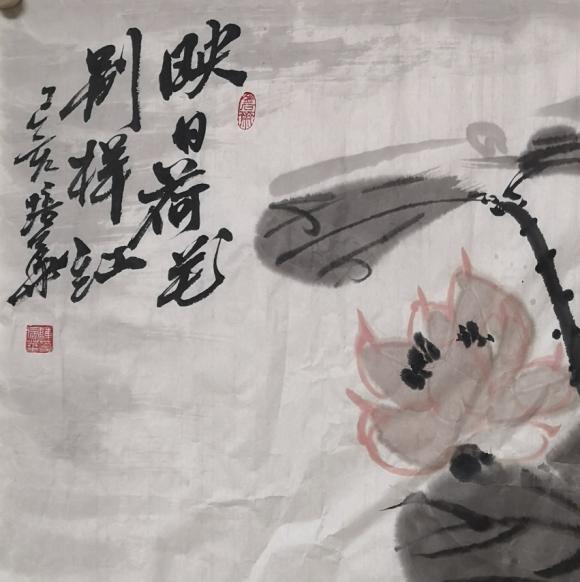 映日荷花
别样红
己亥 培华